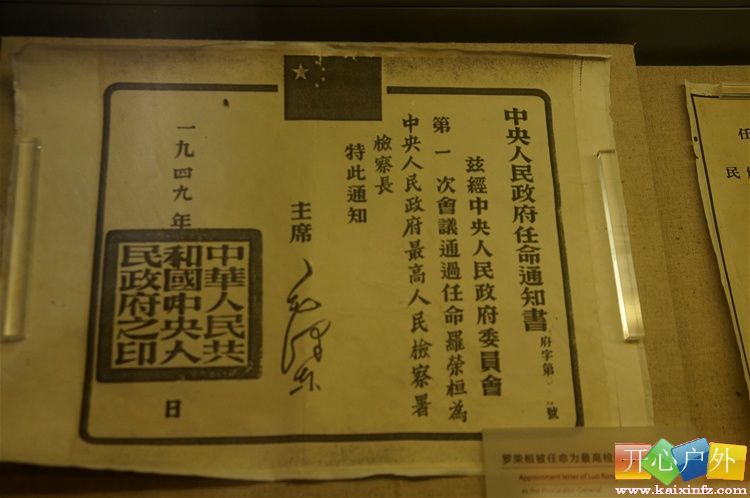 中央人民政府任命通知書
府字第
號
茲經中央人民政府委員會
第一次會議通過任命羅榮桓為
中央人民政府最高人民檢察署
檢察長
特此通知
主席 毛澤東
一九四九年
日
中華人民共
和國中央人
民政府之印
任
民
罗荣桓被任命为最高检
Appointment letter of Luo Ron
as the Procurator-General
开心户外
www.kaixinfz.com